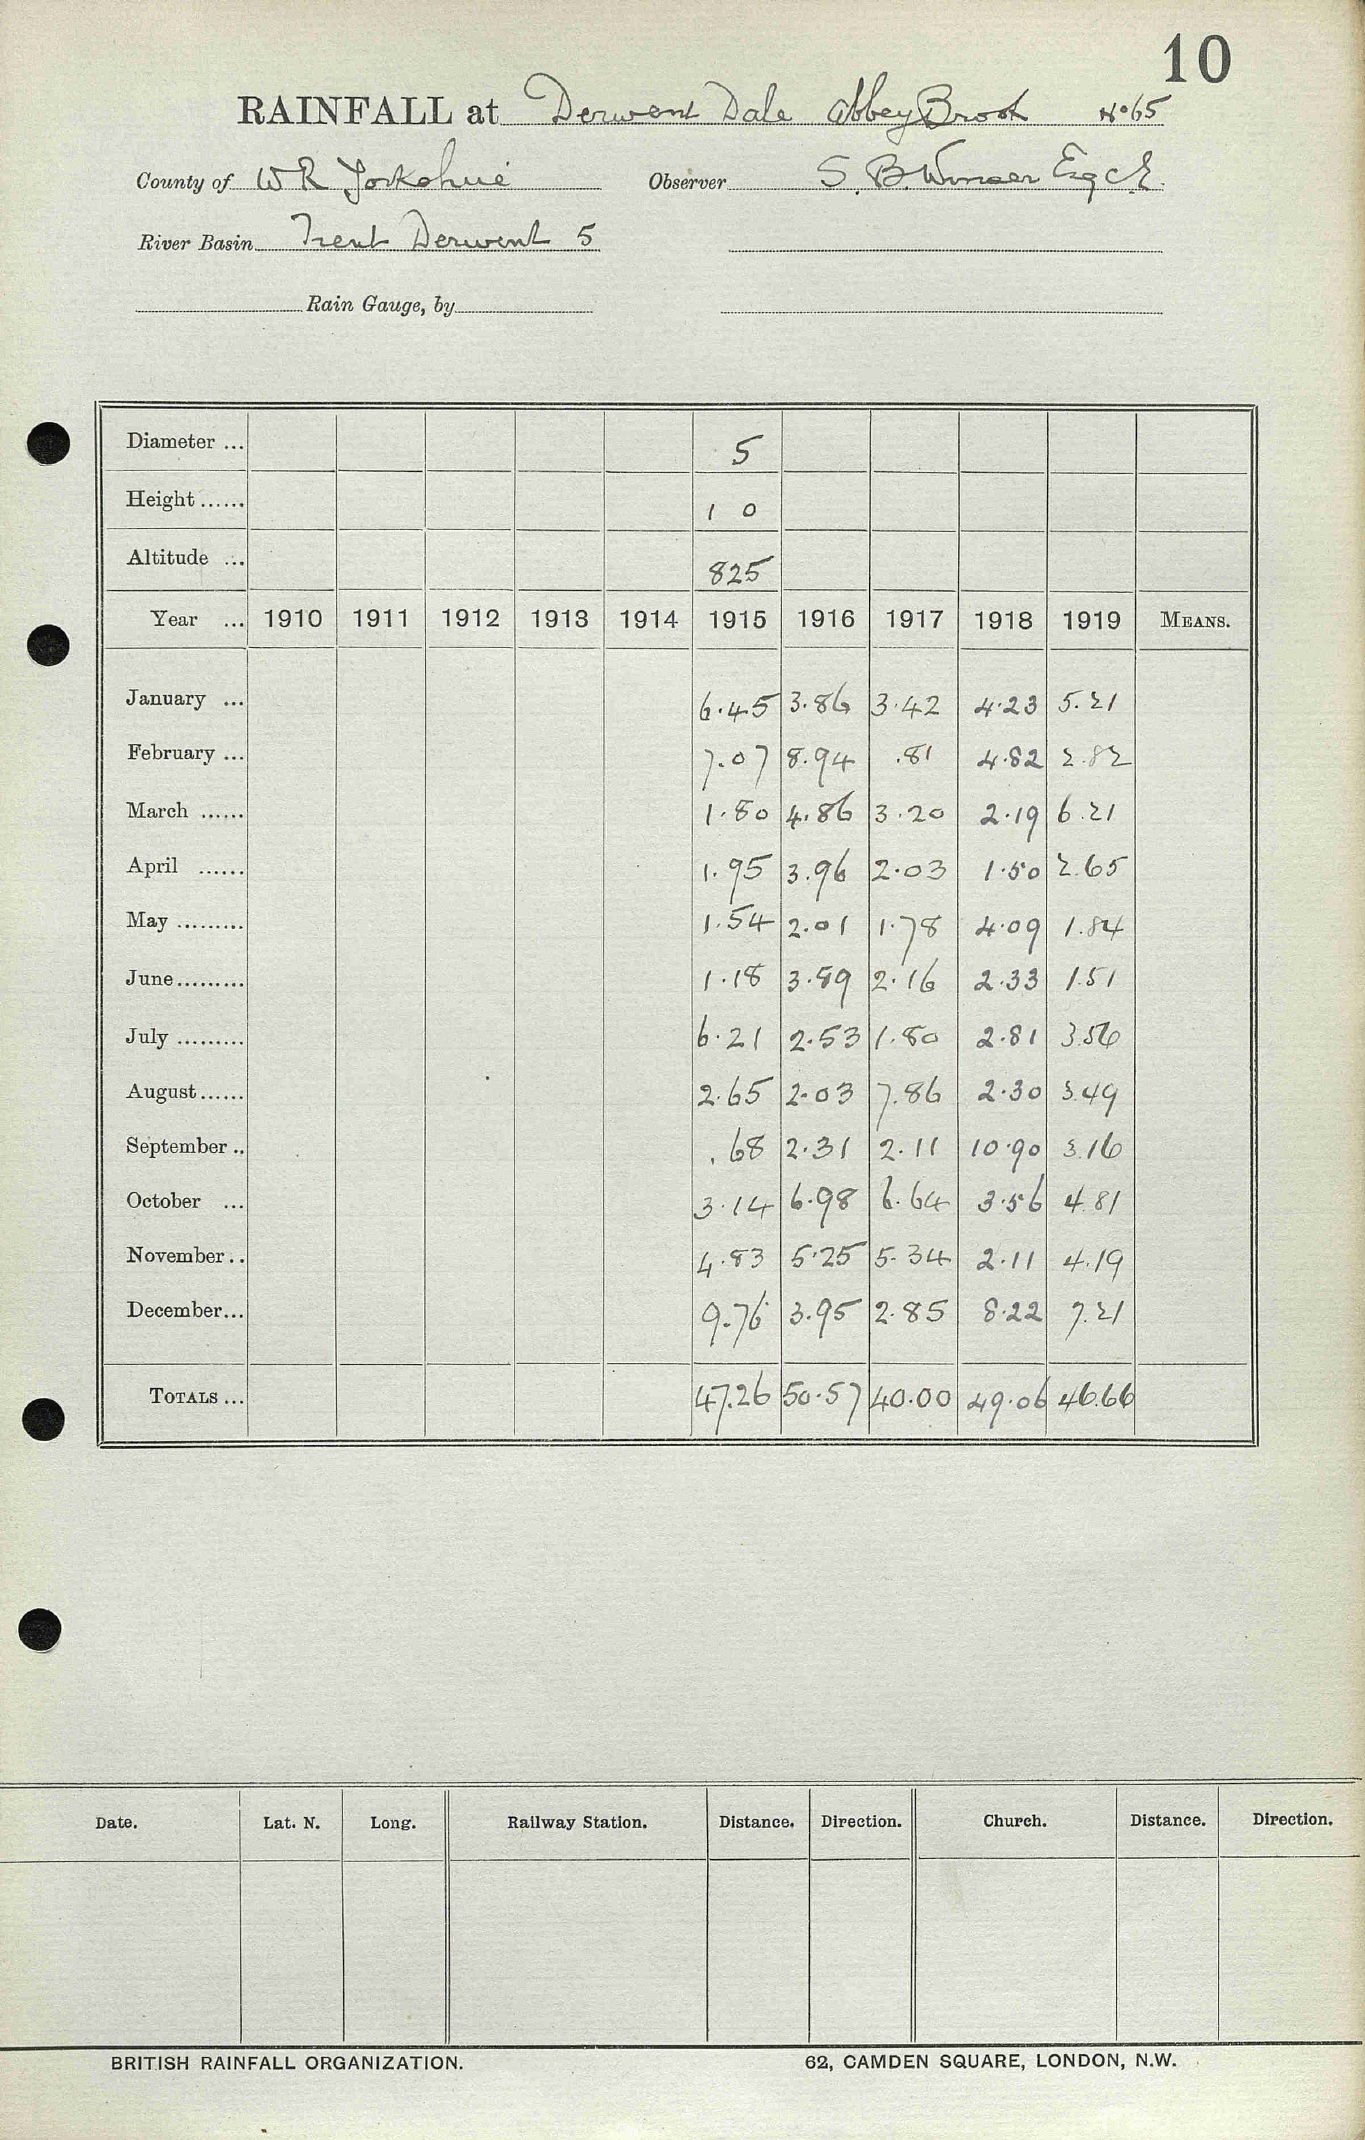 10
RAINFALL at Derwent Dale Abbey Brook No 65
County of W R Yorkshire Observer S. B. Winser Esq C.E.
River Basin Trent Derwent 5
Rain Gauge, by
Diameter ... 5
Height ...... 1 0
Altitude ... 825
Year ... 1910 1911 1912 1913 1914 1915 1916 1917 1918 1919 MEANS.
January ... 6.45 3.86 3.42 4.23 5.21
February ... 7.07 8.94 .81 4.82 2.82
March ...... 1.80 4.86 3.20 2.19 6.21
April ...... 1.95 3.96 2.03 1.50 2.65
May ......... 1.54 2.01 1.78 4.09 1.84
June ......... 1.18 3.89 2.16 2.33 1.51
July ......... 6.21 2.53 1.80 2.81 3.56
August ...... 2.65 2.03 7.86 2.30 3.49
September .. .68 2.31 2.11 10.90 3.16
October ... 3.14 6.98 6.64 3.56 4.81
November .. 4.83 5.25 5.34 2.11 4.19
December ... 9.76 3.95 2.85 8.22 7.21
TOTALS ... 47.26 50.57 40.00 49.06 46.66
Date. Lat. N. Long. Railway Station. Distance. Direction. Church. Distance. Direction.
BRITISH RAINFALL ORGANIZATION. 62, CAMDEN SQUARE, LONDON, N.W.